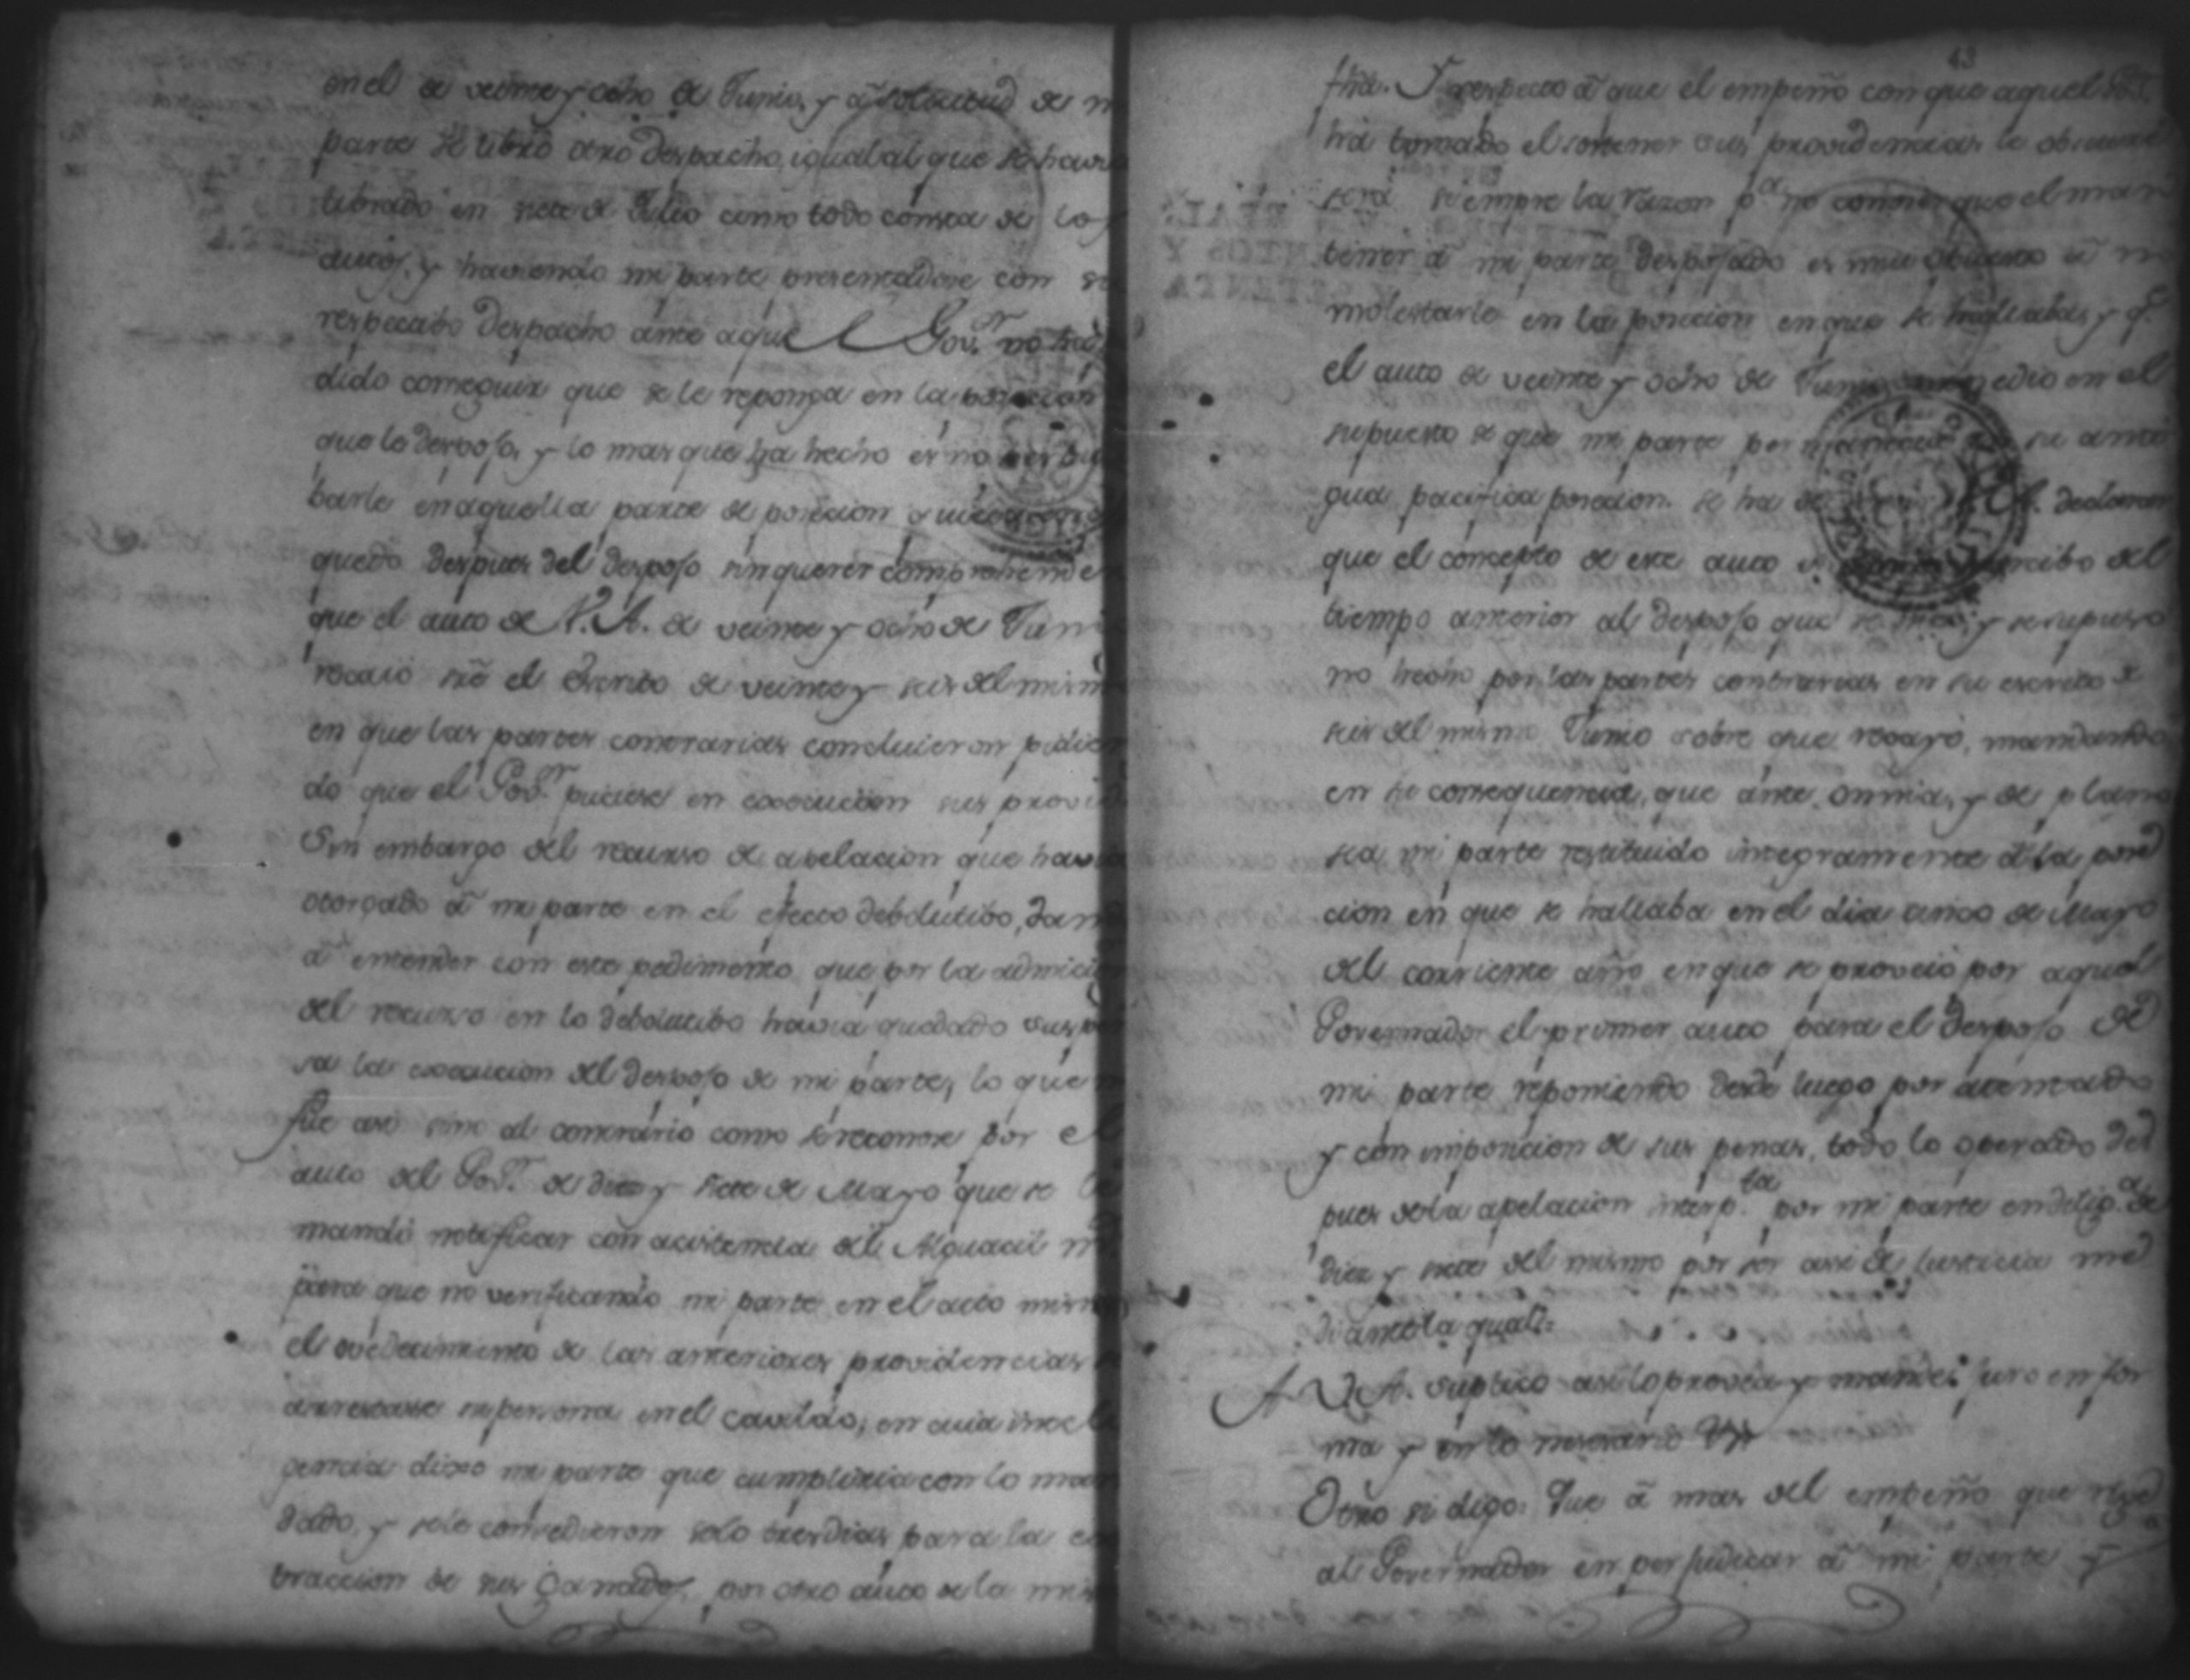 en el de veinte y ocho de Junio, y a solicitud de m
parte se libró otro despacho igual al que se havia
librado en siete de Julio como todo consta de los
autos, y haviendo mi parte presentadose con el
respectivo Despacho ante aquel Gov.or no ha
dido conseguir que se le reponga en la posecion
que le despojo, y lo mas que ha hecho es no pertur
barle en aquella parte de posecion que
quedó despues del despojo sin querer comprehender
que el auto de V.A. de veinte y ocho de Juni
recaió sre el Escrito de veinte y seis del mism
en que las partes contrarias concluieron pidien
do que el Gov.or pusiese en execucion sus provid
Sin embargo del recurso de apelacion que havia
otorgado á mi parte en el efecto debolutibo, dan
á entender con este pedimento que por la admici
del recurso en lo debolutibo havia quedado suspen
sa la execucion del despojo de mi parte, lo que n
fue asi sino al contrario como se reconose por el
auto del Gov.r de diez y siete de Mayo que se le
mandó notificar con acistencia del Alguacil m
para que no verificando mi parte en el acto mismo
el ovedecimiento de las anteriores providencias
arrestase su persona en el cavildo, en cuia inteli
gencia dixo mi parte que cumpliria con lo man
dado, y se le concedieron solo tres dias para la ex
traccion de sus Ganados, por otro auto de la mis
43
fha. Y respecto á que el empeño con que aquel Gov.r
há tomado el sostener sus providencias le
será siempre la razon p.a no conoser que el man
tener á mi parte despojado es mui opuesto á no
molestarle en la posecion en que se hallaba, y q.e
el auto de veinte y ocho de Junio en el
supuesto de que mi parte permanecia su anti
gua pacifica posecion. se ha de declarar
que el concepto de este auto del
tiempo anterior al despojo que se y se supuso
no hecho por las partes contrarias en su escrito de
seis del mismo Junio sobre que recayó, mandando
en su consequencia, que ante omnia, y de plano
sea mi parte restituido integramente á la pose
cion en que se hallaba en el dia cinco de Mayo
del corriente año en que se proveió por aquel
Governador el primer auto para el despojo de
mi parte reponiendo desde luego por atentado
y con imposicion de sus penas, todo lo operado des
pues de la apelacion interp.ta por mi parte en dilig.a de
diez y siete del mismo por ser asi de Justicia me
diante la qual=
A V.A. suplico asi lo provea y mande: juro en for
ma y en lo necesario V.a
Otro si digo: Que á mas del empeño que
al Governador en perjudicar á mi parte y